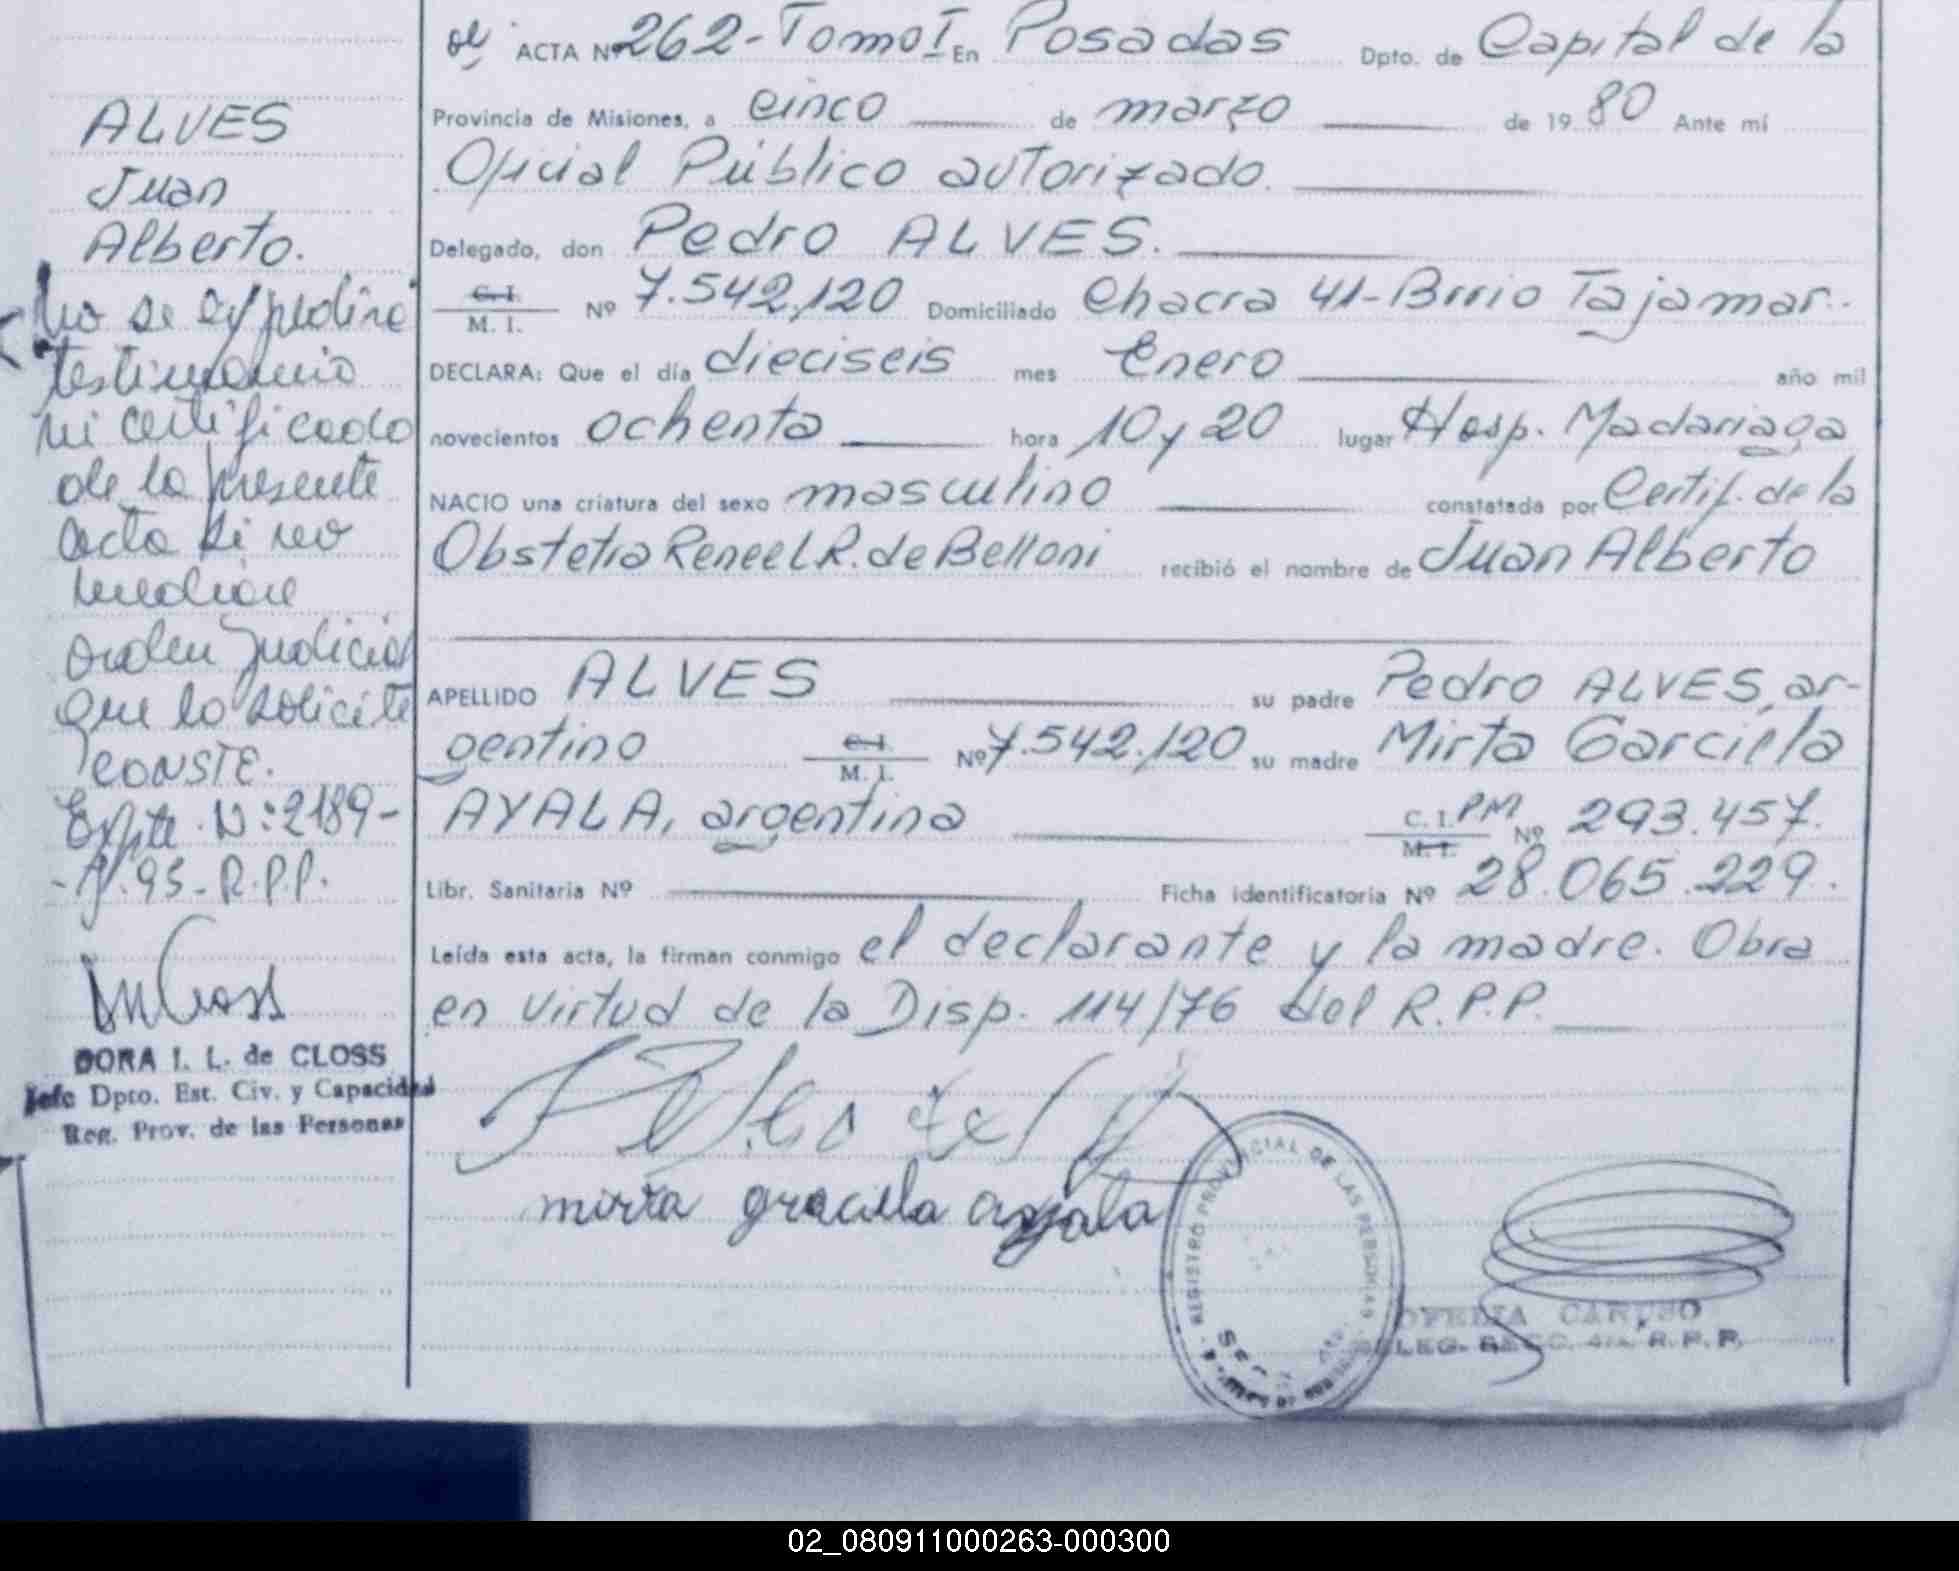 ALVES
Juan
Alberto.
No se expedirá
testimonio
ni certificado
de la presente
acta si no
mediare
orden Judicial
que lo solicite
CONSTE.
Expte. N:2189-
-A.95-R.P.P.
DORA I. L. de CLOSS
Jefe Dpto. Est. Civ. y Capacidad
Reg. Prov. de las Personas
ACTA Nº 262-Tomo I En Posadas Dpto. de Capital de la
Provincia de Misiones, a cinco de marzo de 19 80 Ante mí
Oficial Público autorizado.
Delegado, don Pedro ALVES.
C. I. M. I. Nº 7.542.120 Domiciliado Chacra 41-Brrio Tajamar.
DECLARA: Que el día dieciseis mes Enero año mil
novecientos ochenta hora 10 y 20 lugar Hosp. Madariaga
NACIO una criatura del sexo masculino constatada por Certif. de la
Obstetra Renee L R. de Belloni recibió el nombre de Juan Alberto
APELLIDO ALVES su padre Pedro ALVES, ar-
gentino C. I. M. I. Nº 7.542.120 su madre Mirta Garciela
AYALA, argentina C. I. PM M. I. Nº 293.457.
Libr. Sanitaria Nº Ficha identificatoria Nº 28.065.229.
Leída esta acta, la firman conmigo el declarante y la madre. Obra
en virtud de la Disp. 114/76 del R.P.P.
mirta graciela ayala
REGISTRO PROVINCIAL DE LAS PERSONAS
OFELIA CARUSO
R. P. P.
02_080911000263-000300